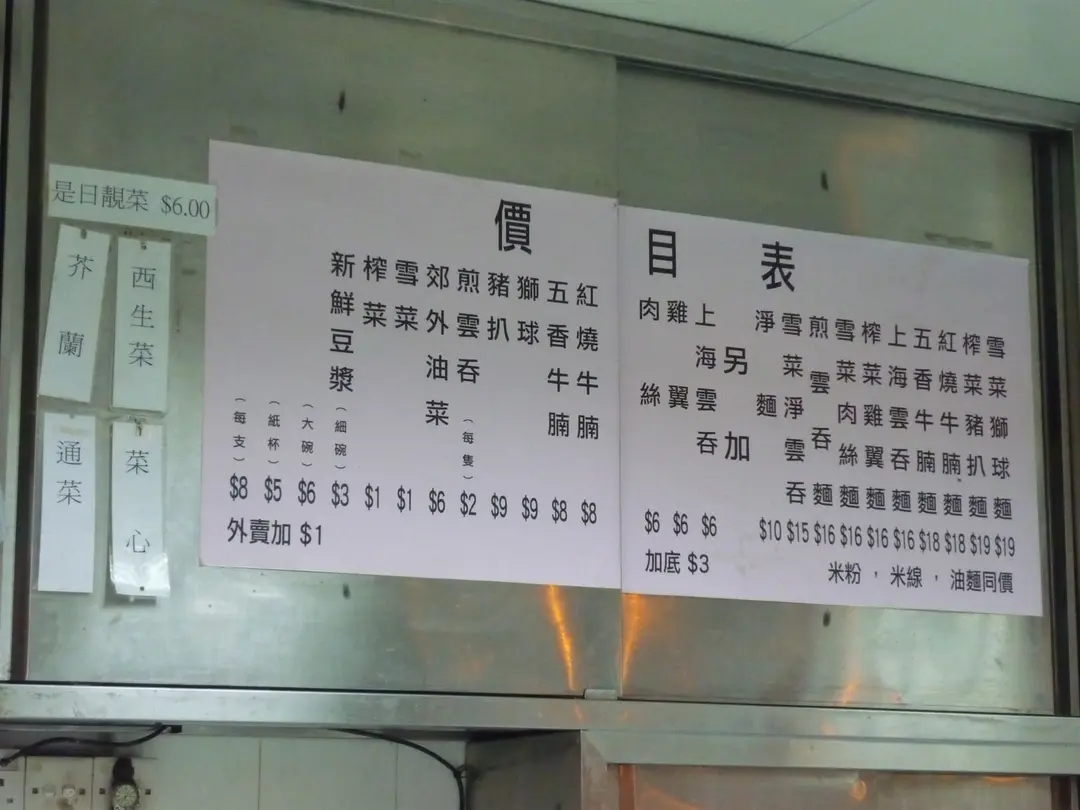 價目表
雪菜獅球麵 $19
榨菜豬扒麵 $19
紅燒牛腩麵 $18
五香牛腩麵 $18
上海雲吞麵 $16
榨菜雞翼麵 $16
雪菜肉絲麵 $16
煎雲吞麵 $16
雪菜淨雲吞 $15
淨麵 $10
米粉，米線，油麵同價
另加
上海雲吞 $6
雞翼 $6
肉絲 $6
加底 $3
紅燒牛腩 $8
五香牛腩 $8
獅球 $9
豬扒 $9
煎雲吞(每隻) $2
郊外油菜 $6
雪菜 $1
榨菜 $1
新鮮豆漿(細碗) $3
(大碗) $6
(紙杯) $5
(每支) $8
外賣加 $1
是日靚菜 $6.00
西生菜
芥蘭
菜心
通菜